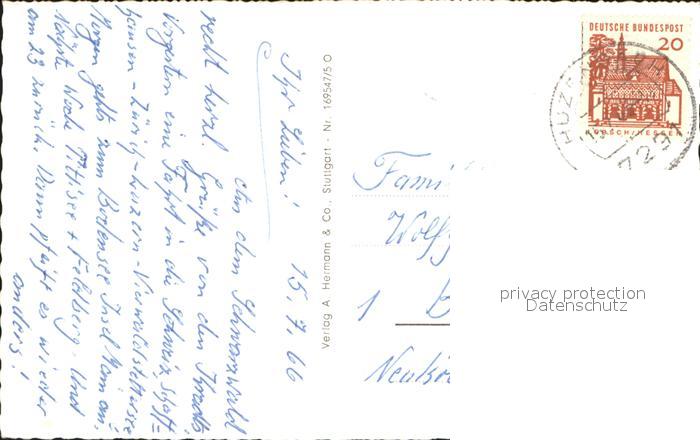 Ihr Lieben! 15.7.66
Aus dem Schwarzwald
recht herzl. Grüße von den
Vorgestern eine Fahrt in die Schweiz, Schaff=
hausen - Zürich - Luzern - Vierwaldstettersee
Morgen gehts zum Bodensee Insel Mainau.
Nächste Woche Titisee + Feldberg. Und
am 23 zurück. Dann pfeift es wieder
anders!
Verlag A. Hermann & Co., Stuttgart - Nr. 169547/5 O
DEUTSCHE BUNDESPOST
20
LORSCH/HESSEN
HUZ
727
Fami
Wolfg
1 B
Neukö
privacy protection
Datenschutz